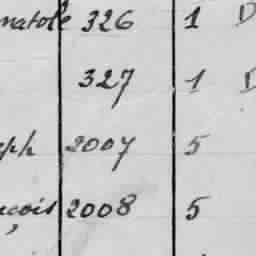 natole 326 1 D
327 1 D
eph 2007 5
nçois 2008 5